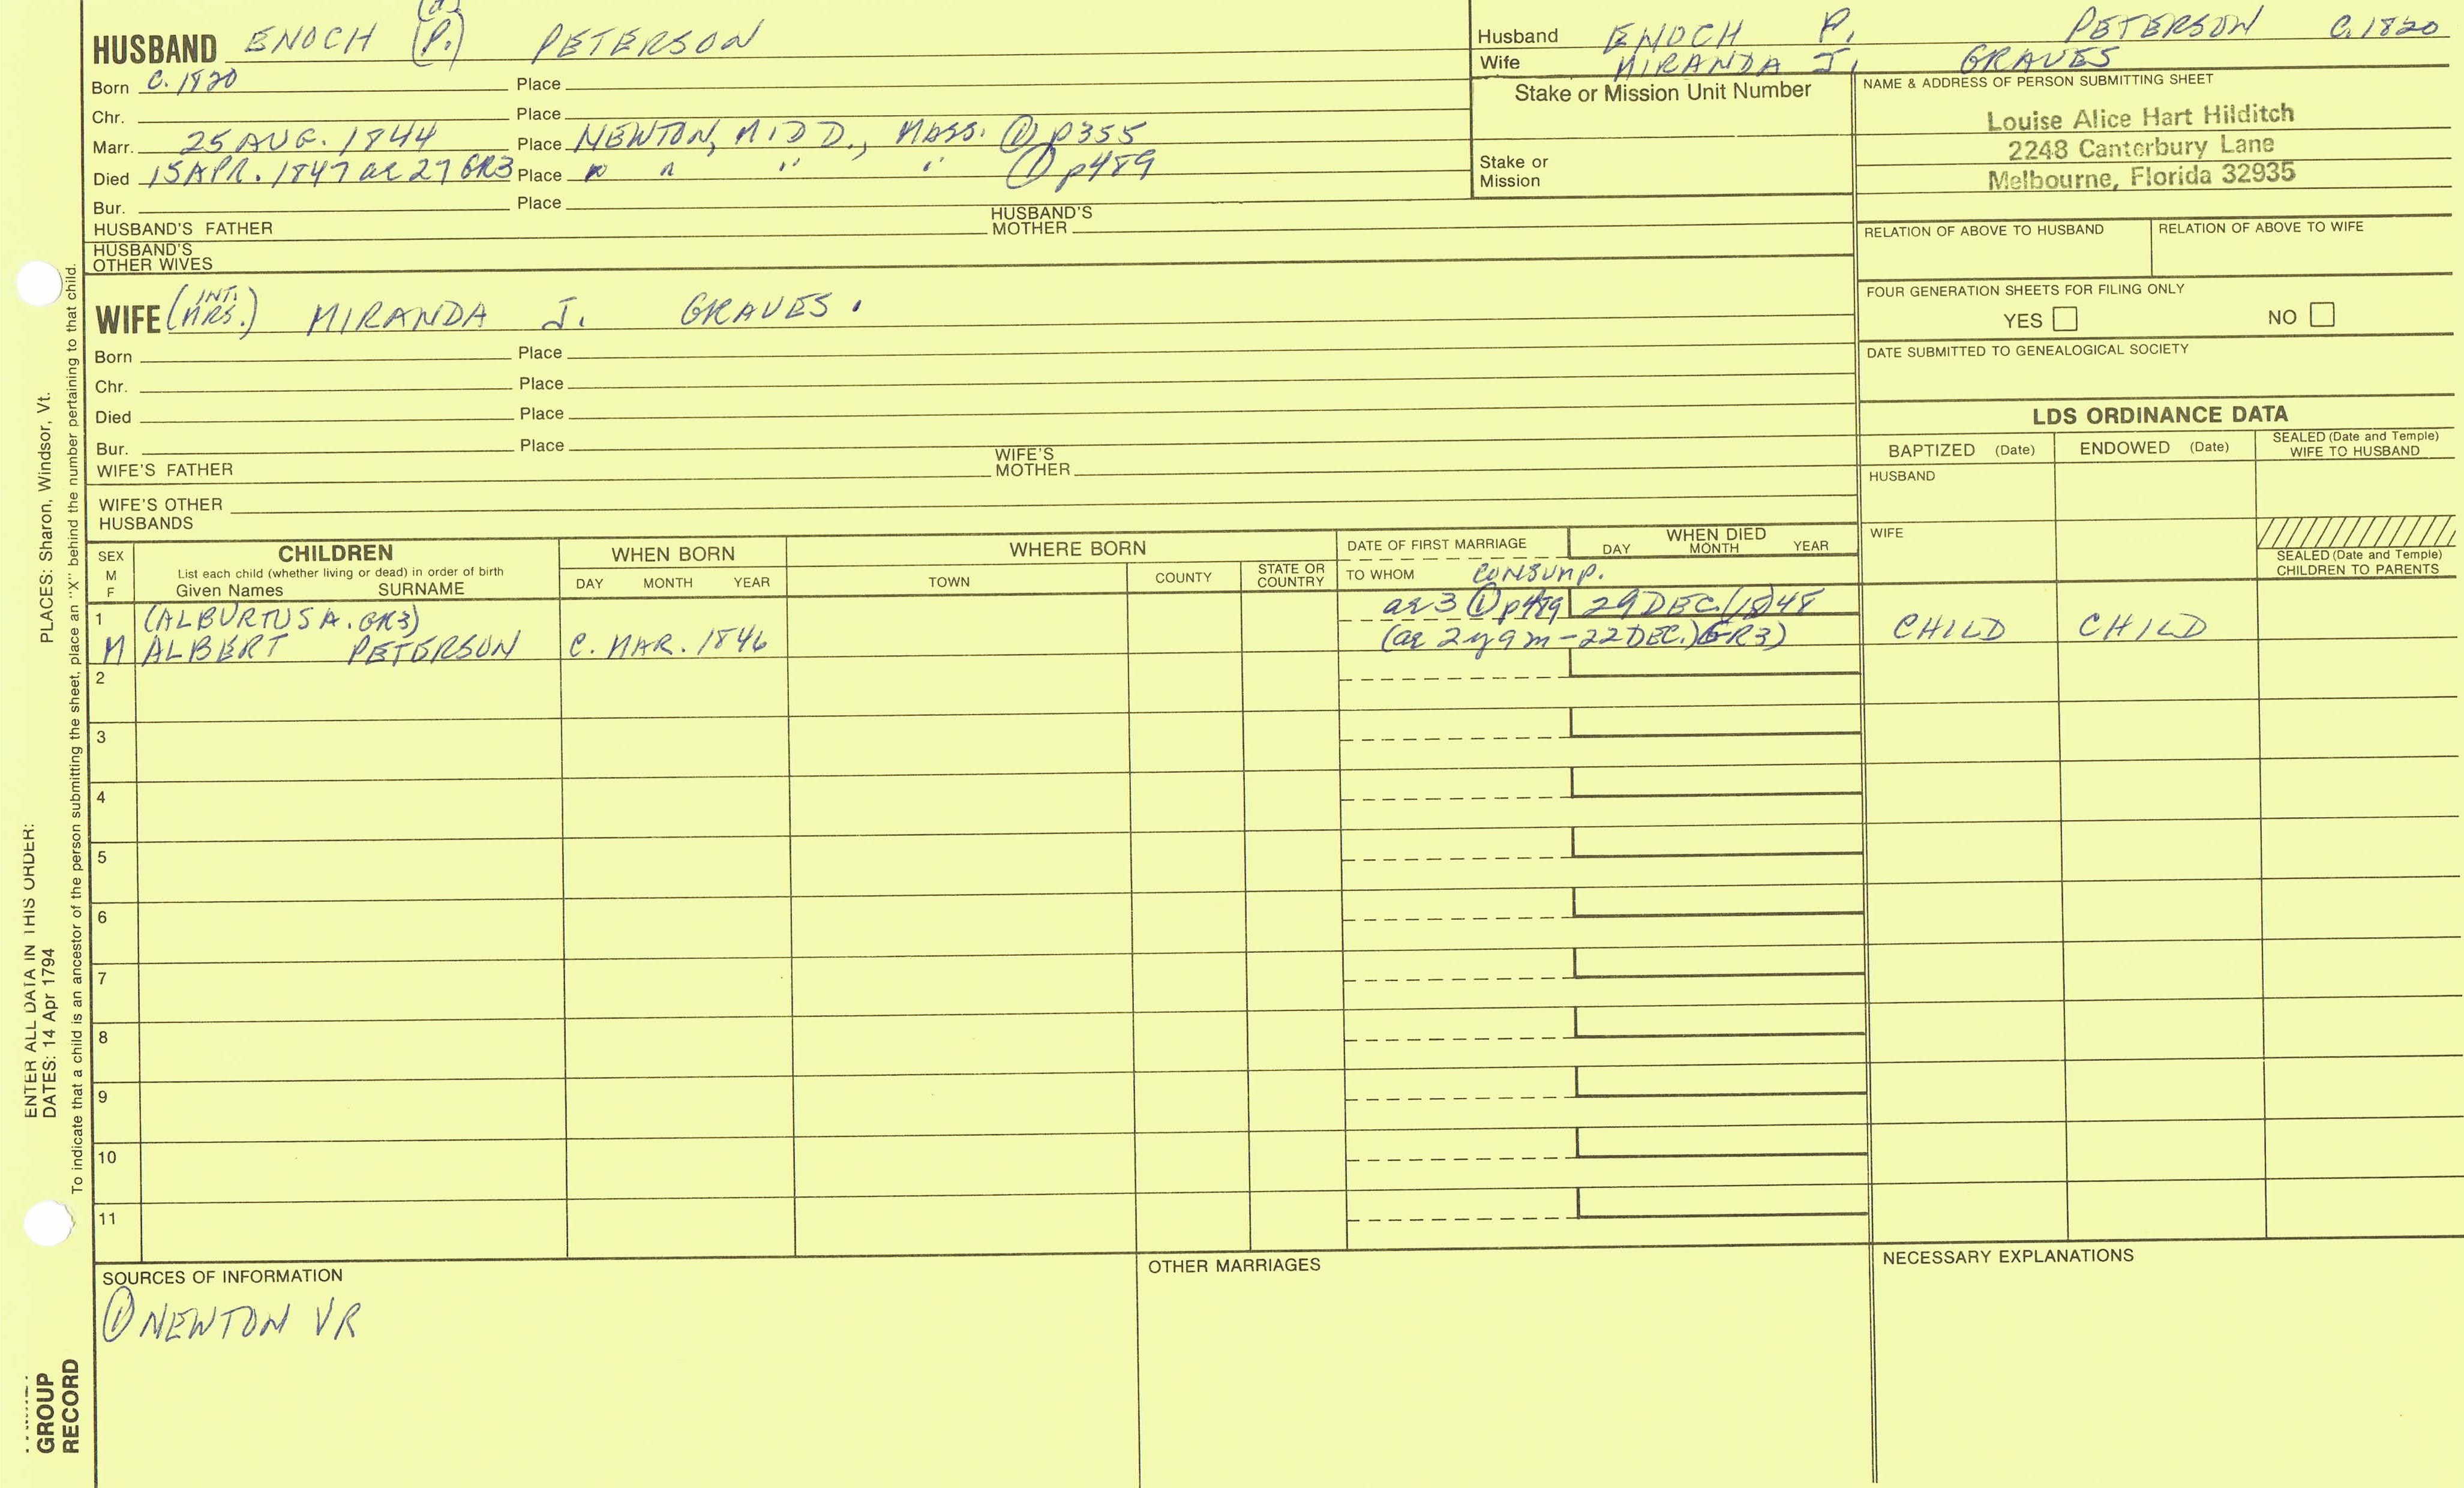 HUSBAND ENOCH (P.) PETERSON
Born C. 1820 Place
Chr. Place
Marr. 25 AUG. 1844 Place NEWTON, MIDD., MASS. ① p355
Died 15 APR. 1847 ae 27 GR3 Place " " " " ① p489
Bur. Place
HUSBAND'S FATHER HUSBAND'S MOTHER
HUSBAND'S OTHER WIVES
Husband ENOCH P. PETERSON C. 1820
Wife MIRANDA J. GRAVES
Stake or Mission Unit Number
Stake or Mission
NAME & ADDRESS OF PERSON SUBMITTING SHEET
Louise Alice Hart Hilditch
2248 Canterbury Lane
Melbourne, Florida 32935
RELATION OF ABOVE TO HUSBAND RELATION OF ABOVE TO WIFE
FOUR GENERATION SHEETS FOR FILING ONLY
YES NO
DATE SUBMITTED TO GENEALOGICAL SOCIETY
WIFE (INT. MRS.) MIRANDA J. GRAVES.
Born Place
Chr. Place
Died Place
Bur. Place
WIFE'S FATHER WIFE'S MOTHER
WIFE'S OTHER HUSBANDS
LDS ORDINANCE DATA
BAPTIZED (Date) ENDOWED (Date) SEALED (Date and Temple) WIFE TO HUSBAND
HUSBAND
WIFE
SEALED (Date and Temple) CHILDREN TO PARENTS
SEX M F
CHILDREN
List each child (whether living or dead) in order of birth
Given Names SURNAME
WHEN BORN
DAY MONTH YEAR
WHERE BORN
TOWN COUNTY STATE OR COUNTRY
DATE OF FIRST MARRIAGE
TO WHOM
WHEN DIED
DAY MONTH YEAR
CONSUMP.
1 (ALBURTUS A. GR3) ae 3 ① p489 29 DEC. 1848
M ALBERT PETERSON C. MAR. 1846 (ae 2y 9m - 22 DEC.) GR3) CHILD CHILD
2
3
4
5
6
7
8
9
10
11
SOURCES OF INFORMATION
① NEWTON VR
OTHER MARRIAGES
NECESSARY EXPLANATIONS
ENTER ALL DATA IN THIS ORDER:
DATES: 14 Apr 1794 PLACES: Sharon, Windsor, Vt.
To indicate that a child is an ancestor of the person submitting the sheet, place an "X" behind the number pertaining to that child.
GROUP
RECORD